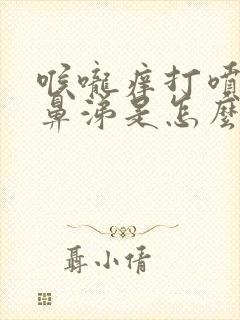 喉嚨痒打噴
鼻涕是怎麼
聶小倩